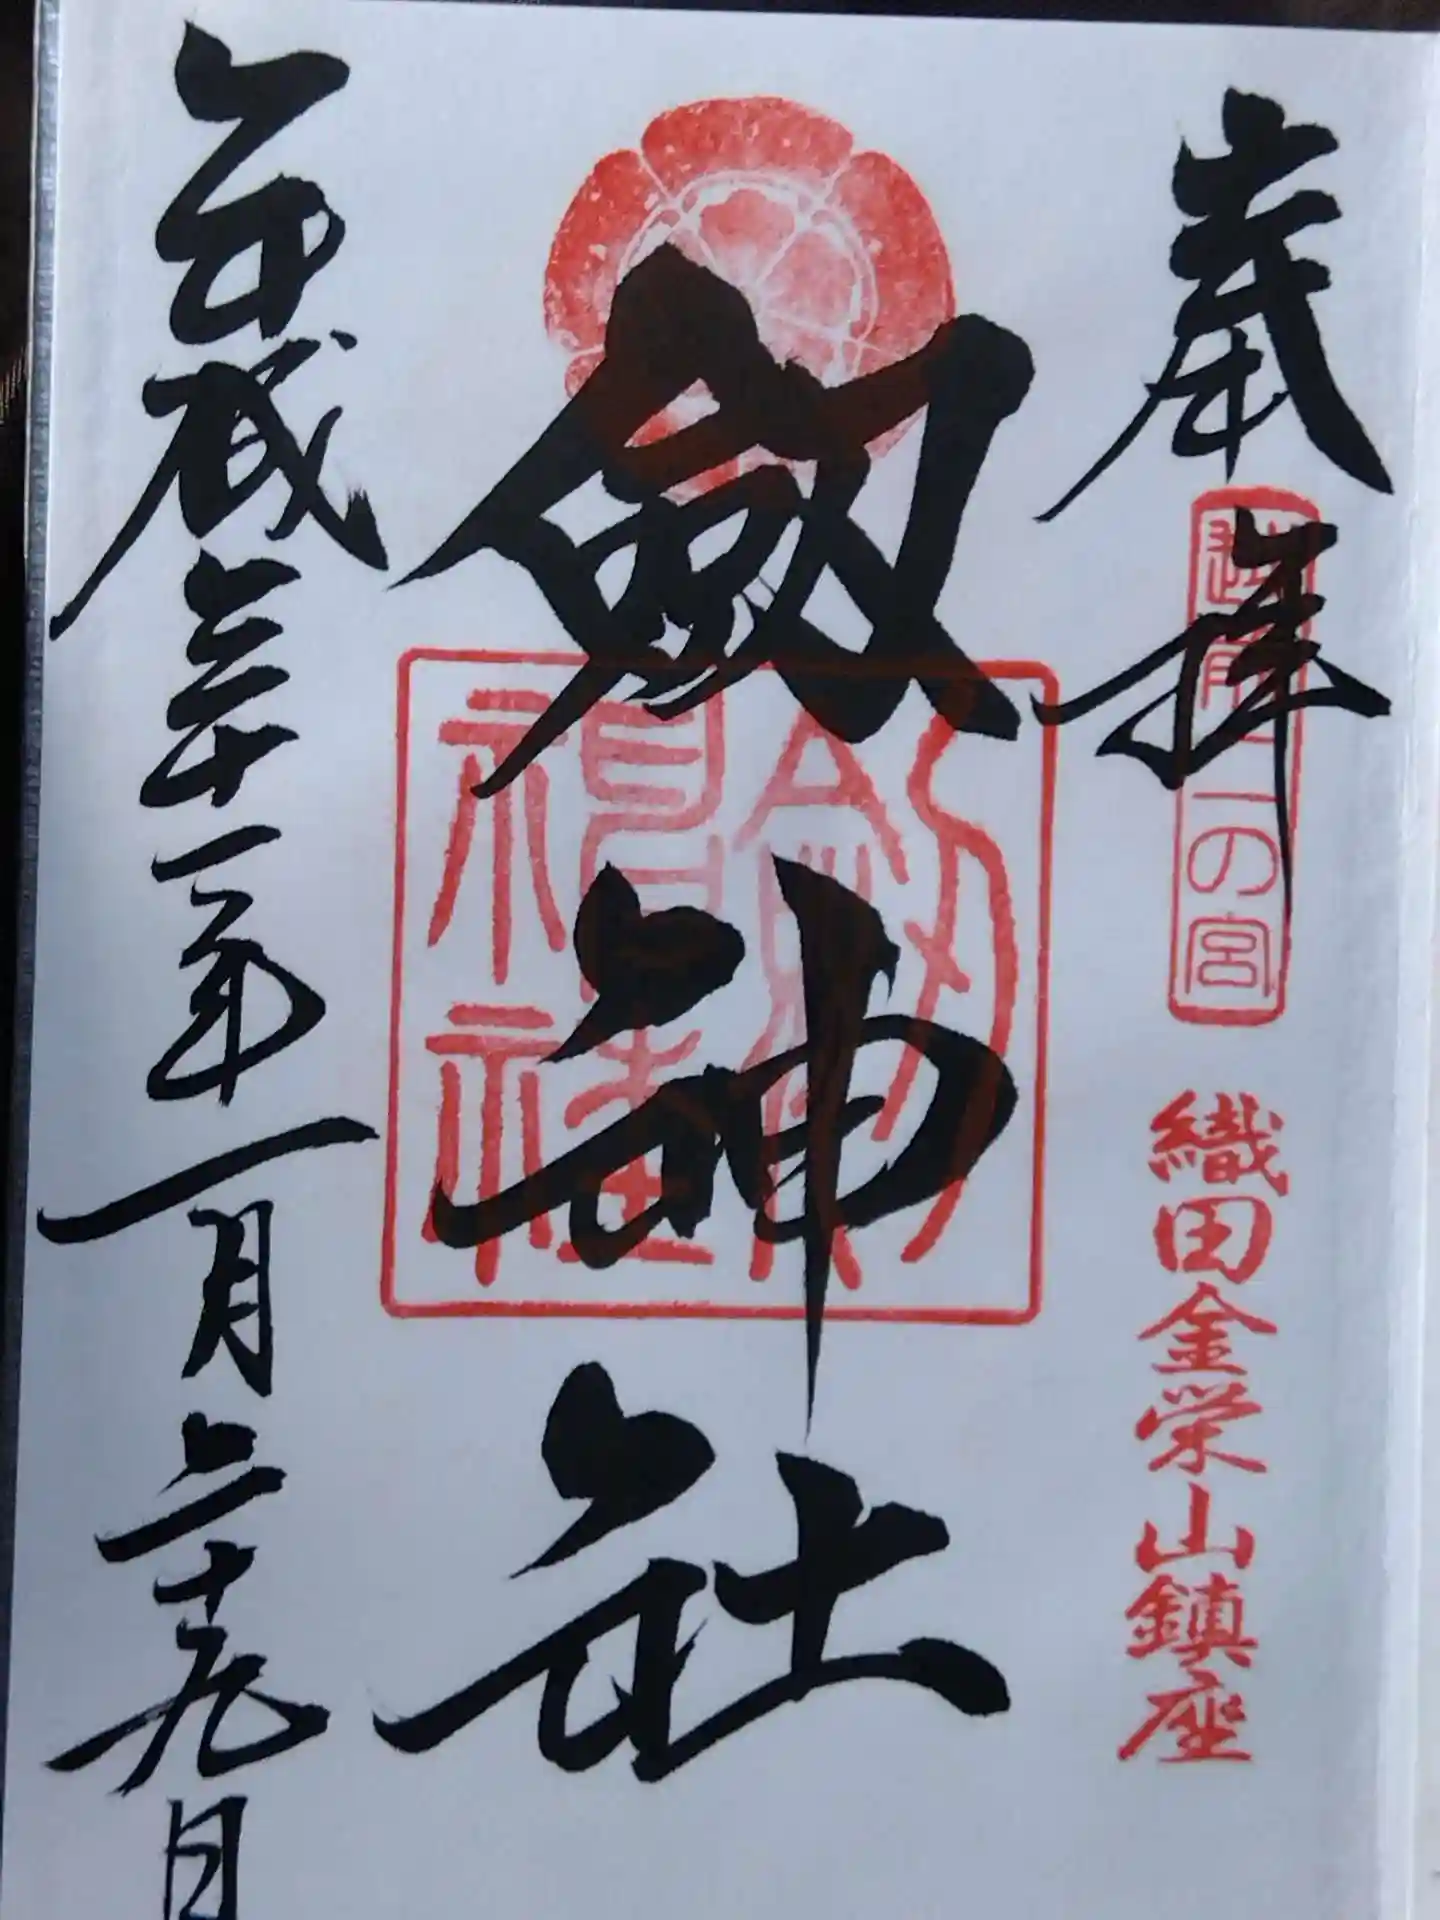 奉拝
越前二の宮
織田金栄山鎮座
劔神社
劔神社
平成三十一年一月二十九日